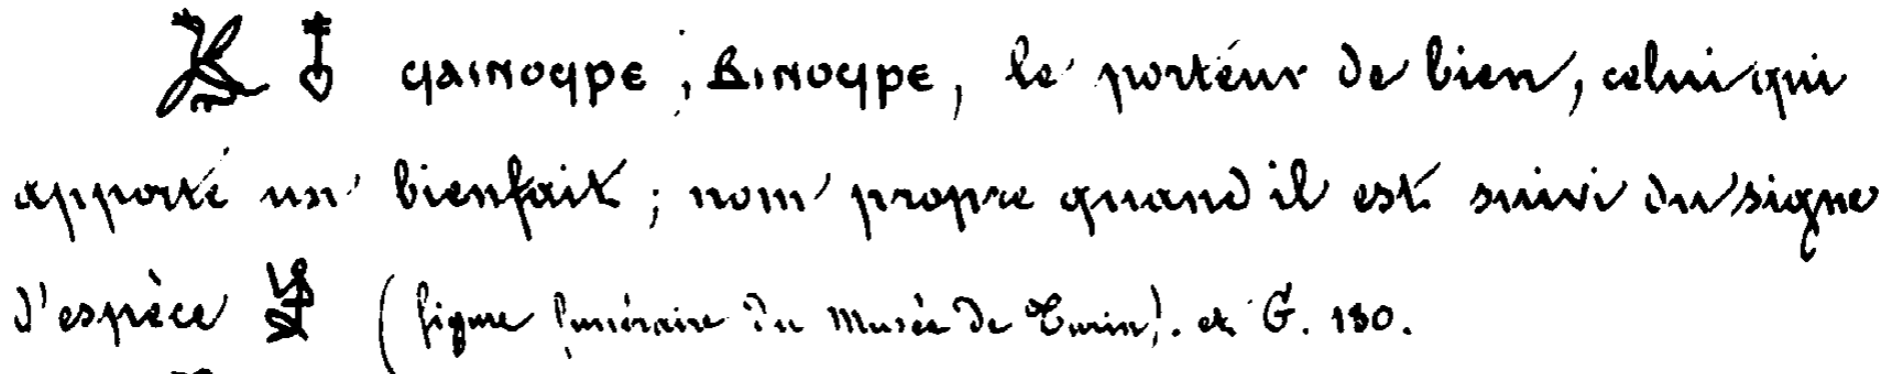 ϥⲁⲓⲛⲟϥⲣⲉ, ⲃⲓⲛⲟϥⲣⲉ, le porteur de bien, celui qui
apporte un bienfait; nom propre quand il est suivi du signe
d'espèce (figure funéraire du Musée de Turin). et G. 130.